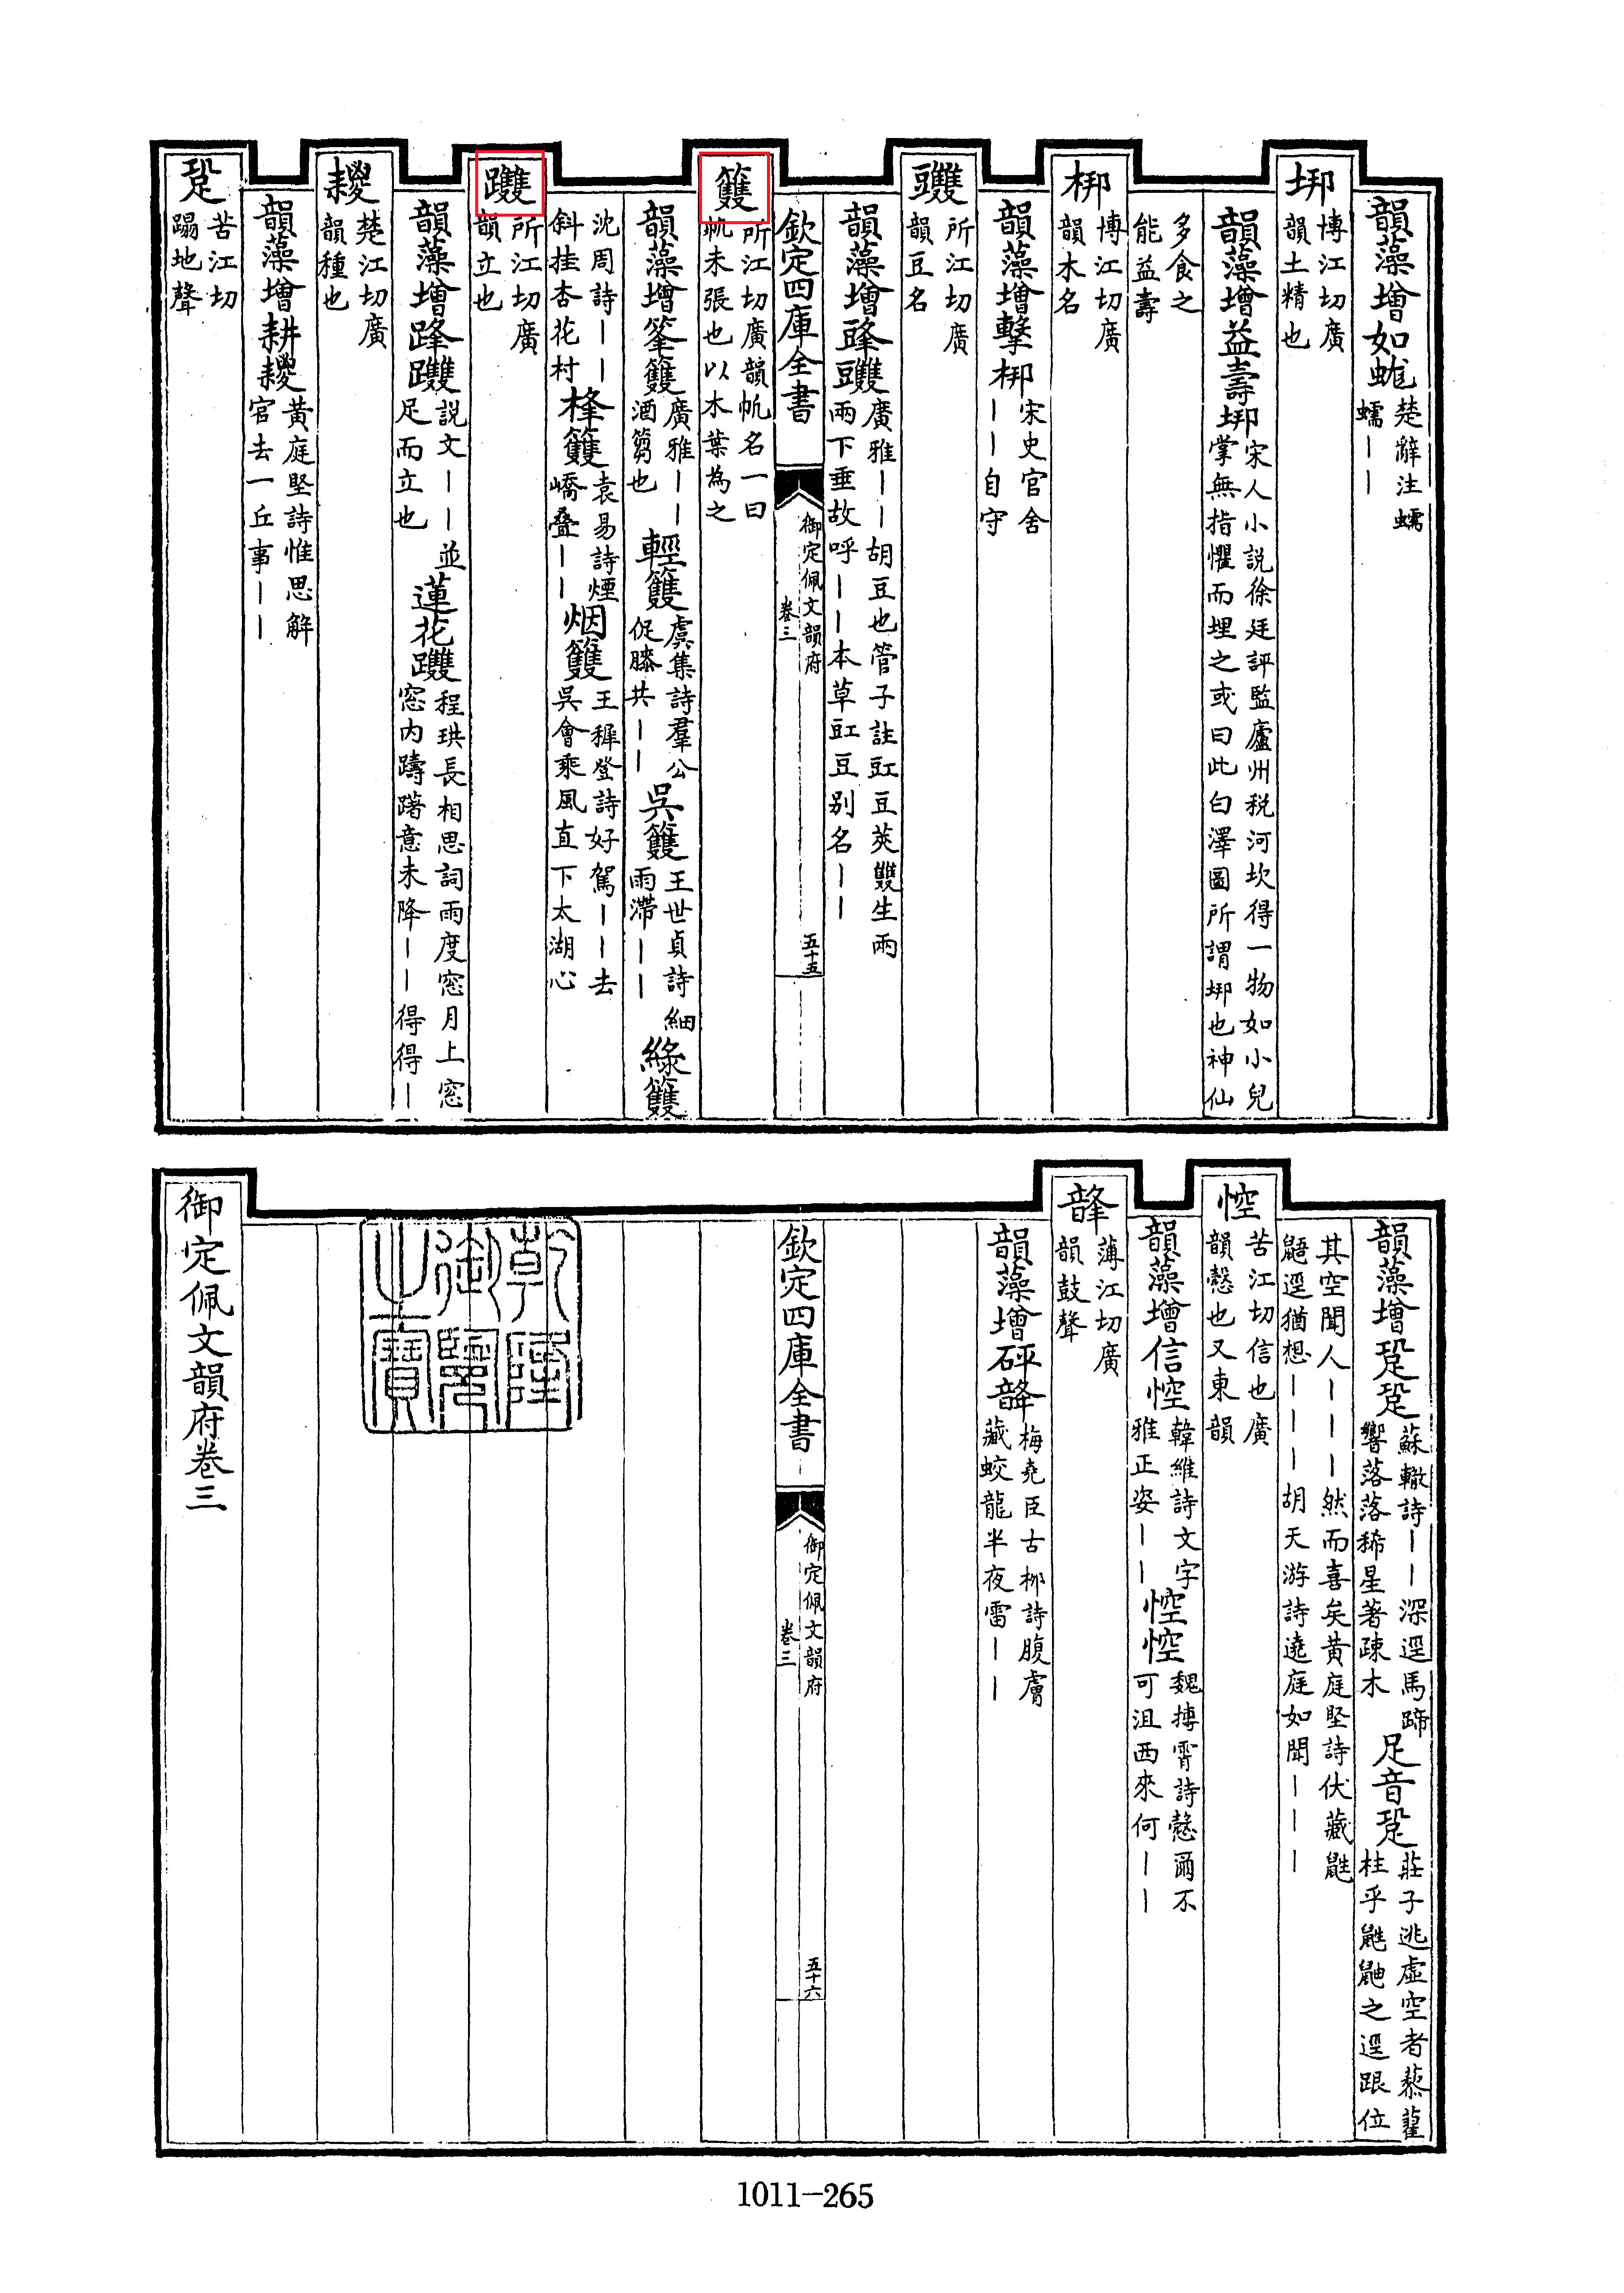 韻藻增如蚘楚辭注蠕
蠕丨丨
垹博江切廣
韻土精也
韻藻增益壽垹宋人小說徐廷評監廬州税河坎得一物如小兒
掌無指懼而埋之或曰此白澤圖所謂垹也神仙
多食之
能益壽
梆博江切廣
韻木名
韻藻增擊梆宋史官舍
丨丨自守
䝄所江切廣
韻豆名
韻藻增䜶䝄廣雅丨丨胡豆也管子註豇豆莢雙生兩
兩下垂故呼丨丨本草豇豆別名丨丨
欽定四庫全書
御定佩文韻府
卷三
五十五
籆所江切廣韻帆名一曰
帆未張也以木葉為之
韻藻增篧籆廣雅丨丨
酒篘也
輕籆虞集詩羣公
促膝共丨丨
吳籆王世貞詩細
雨滯丨丨
綠籆
沈周詩丨丨
斜挂杏花村
桻籆袁易詩煙
嶠叠丨丨
烟籆王穉登詩好駕丨丨去
吳會乘風直下太湖心
躞所江切廣
韻立也
韻藻增踭躞説文丨丨並
足而立也
蓮花躞程珙長相思詞雨度窓月上窓
窓内躊躇意未降丨丨得得丨
稯楚江切廣
韻種也
韻藻增耕稯黃庭堅詩惟思解
官去一丘事丨丨
跫苦江切
蹋地聲
韻藻增跫跫蘇轍詩丨丨深逕馬蹄
響落落稀星著疎木
足音跫莊子逃虛空者藜藋
柱乎鼪鼬之逕踉位
其空聞人丨丨丨然而喜矣黄庭堅詩伏藏鼪
鼯逕猶想丨丨丨胡天游詩遶庭如聞丨丨丨
悾苦江切信也廣
韻慤也又東韻
韻藻增信悾韓維詩文字
雅正姿丨丨
悾悾魏摶霄詩慤爾不
可沮西來何丨丨
韸薄江切廣
韻鼓聲
韻藻增砰韸梅堯臣古桞詩腹膚
藏蛟龍半夜雷丨丨
欽定四庫全書
御定佩文韻府
卷三
五十六
乾隆御覽之寶
御定佩文韻府卷三
1011-265